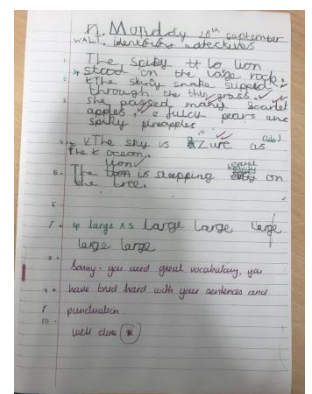 Monday 18th september
WALT: identifying adjectives
1. The spiky lion
stood on the large rock.
2. The skiny snake
through the thin grass.
3. She passed many scarlet
apples, juicy pears and
pineapples
4. The sky is azure as
the ocean.
lion
5. The is stepping on
the tree.
6
7. sp large x5 large large large
large large
8.
you used great vocabulary, you
9. have tried hard with your sentences and
punctuation.
10.
Well done